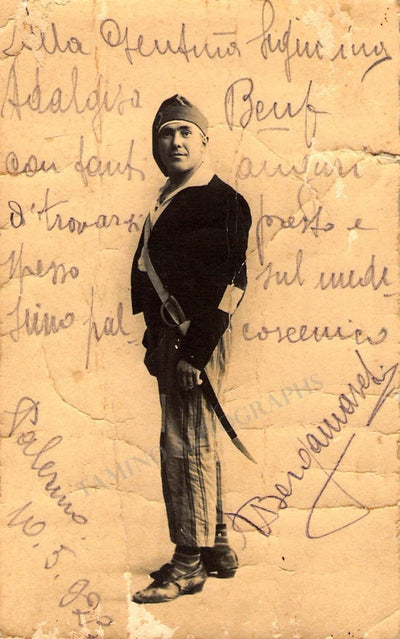 Alla Gentma Signorina
Adalgisa Beuf
con tanti auguri
di trovarsi presto e
spesso sul mede-
simo pal- coscenico
Bergamaschi
Palermo
10.5.920
TAMINO AUTOGRAPHS